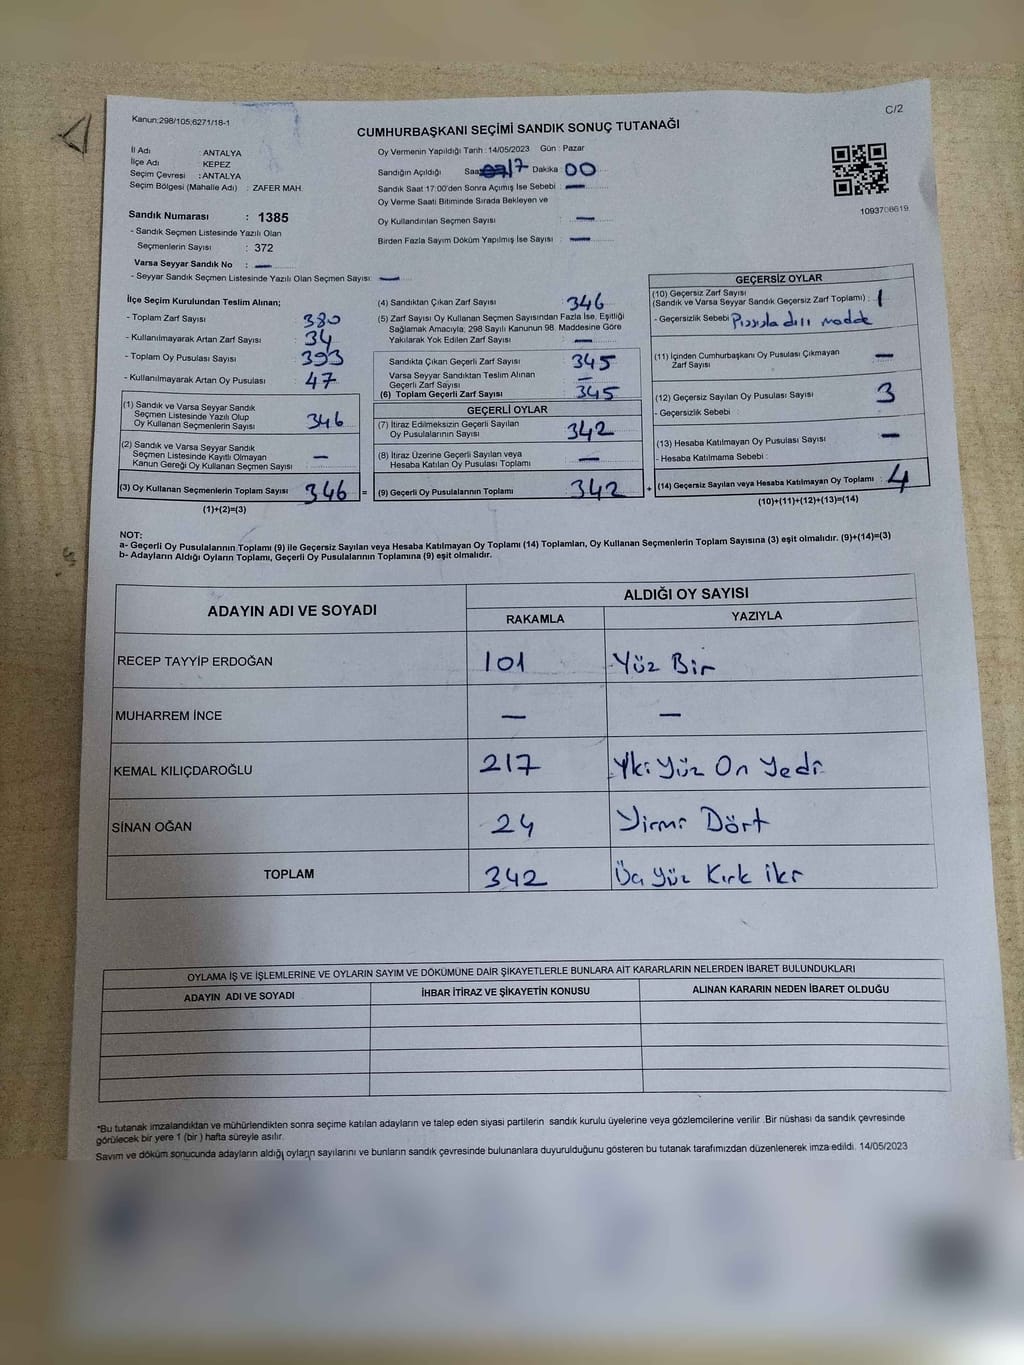 C/2
Kanun:298/105;6271/18-1
CUMHURBAŞKANI SEÇİMİ SANDIK SONUÇ TUTANAĞI
İl Adı : ANTALYA
İlçe Adı : KEPEZ
Seçim Çevresi : ANTALYA
Seçim Bölgesi (Mahalle Adı) : ZAFER MAH.
Sandık Numarası : 1385
- Sandık Seçmen Listesinde Yazılı Olan
Seçmenlerin Sayısı : 372
Varsa Seyyar Sandık No : —
- Seyyar Sandık Seçmen Listesinde Yazılı Olan Seçmen Sayısı: —
Oy Vermenin Yapıldığı Tarih : 14/05/2023 Gün : Pazar
Sandığın Açıldığı Saat 17 Dakika 00
Sandık Saat 17:00'den Sonra Açımış İse Sebebi : —
Oy Verme Saati Bitiminde Sırada Bekleyen ve
Oy Kullandırılan Seçmen Sayısı : —
Birden Fazla Sayım Döküm Yapılmış İse Sayısı : —
1093706619
İlçe Seçim Kurulundan Teslim Alınan;
- Toplam Zarf Sayısı : 380
- Kullanılmayarak Artan Zarf Sayısı : 34
- Toplam Oy Pusulası Sayısı : 393
- Kullanılmayarak Artan Oy Pusulası : 47
(1) Sandık ve Varsa Seyyar Sandık
Seçmen Listesinde Yazılı Olup
Oy Kullanan Seçmenlerin Sayısı : 346
(2) Sandık ve Varsa Seyyar Sandık
Seçmen Listesinde Kayıtlı Olmayan
Kanun Gereği Oy Kullanan Seçmen Sayısı : —
(3) Oy Kullanan Seçmenlerin Toplam Sayısı : 346 =
(1)+(2)=(3)
(4) Sandıktan Çıkan Zarf Sayısı : 346
(5) Zarf Sayısı Oy Kullanan Seçmen Sayısından Fazla İse, Eşitliği
Sağlamak Amacıyla; 298 Sayılı Kanunun 98. Maddesine Göre
Yakılarak Yok Edilen Zarf Sayısı : —
Sandıkta Çıkan Geçerli Zarf Sayısı : 345
Varsa Seyyar Sandıktan Teslim Alınan
Geçerli Zarf Sayısı : —
(6) Toplam Geçerli Zarf Sayısı : 345
GEÇERLİ OYLAR
(7) İtiraz Edilmeksizin Geçerli Sayılan
Oy Pusulalarının Sayısı : 342
(8) İtiraz Üzerine Geçerli Sayılan veya
Hesaba Katılan Oy Pusulası Toplamı : —
(9) Geçerli Oy Pusulalarının Toplamı : 342 +
GEÇERSİZ OYLAR
(10) Geçersiz Zarf Sayısı
(Sandık ve Varsa Seyyar Sandık Geçersiz Zarf Toplamı) : 1
- Geçersizlik Sebebi :
(11) İçinden Cumhurbaşkanı Oy Pusulası Çıkmayan
Zarf Sayısı : —
(12) Geçersiz Sayılan Oy Pusulası Sayısı : 3
- Geçersizlik Sebebi :
(13) Hesaba Katılmayan Oy Pusulası Sayısı : —
- Hesaba Katılmama Sebebi :
(14) Geçersiz Sayılan veya Hesaba Katılmayan Oy Toplamı : 4
(10)+(11)+(12)+(13)=(14)
NOT:
a- Geçerli Oy Pusulalarının Toplamı (9) ile Geçersiz Sayılan veya Hesaba Katılmayan Oy Toplamı (14) Toplamları, Oy Kullanan Seçmenlerin Toplam Sayısına (3) eşit olmalıdır. (9)+(14)=(3)
b- Adayların Aldığı Oyların Toplamı, Geçerli Oy Pusulalarının Toplamına (9) eşit olmalıdır.
ADAYIN ADI VE SOYADI ALDIĞI OY SAYISI
RAKAMLA YAZIYLA
RECEP TAYYİP ERDOĞAN 101 Yüz Bir
MUHARREM İNCE — —
KEMAL KILIÇDAROĞLU 217 İki Yüz On Yedi
SİNAN OĞAN 24 Yirmi Dört
TOPLAM 342 Üç Yüz Kırk iki
OYLAMA İŞ VE İŞLEMLERİNE VE OYLARIN SAYIM VE DÖKÜMÜNE DAİR ŞİKAYETLERLE BUNLARA AİT KARARLARIN NELERDEN İBARET BULUNDUKLARI
ADAYIN ADI VE SOYADI İHBAR İTİRAZ VE ŞİKAYETİN KONUSU ALINAN KARARIN NEDEN İBARET OLDUĞU
*Bu tutanak imzalandıktan ve mühürlendikten sonra seçime katılan adayların ve talep eden siyasi partilerin sandık kurulu üyelerine veya gözlemcilerine verilir. Bir nüshası da sandık çevresinde
görülecek bir yere 1 (bir) hafta süreyle asılır.
Sayım ve döküm sonucunda adayların aldığı oyların sayılarını ve bunların sandık çevresinde bulunanlara duyurulduğunu gösteren bu tutanak tarafımızdan düzenlenerek imza edildi. 14/05/2023